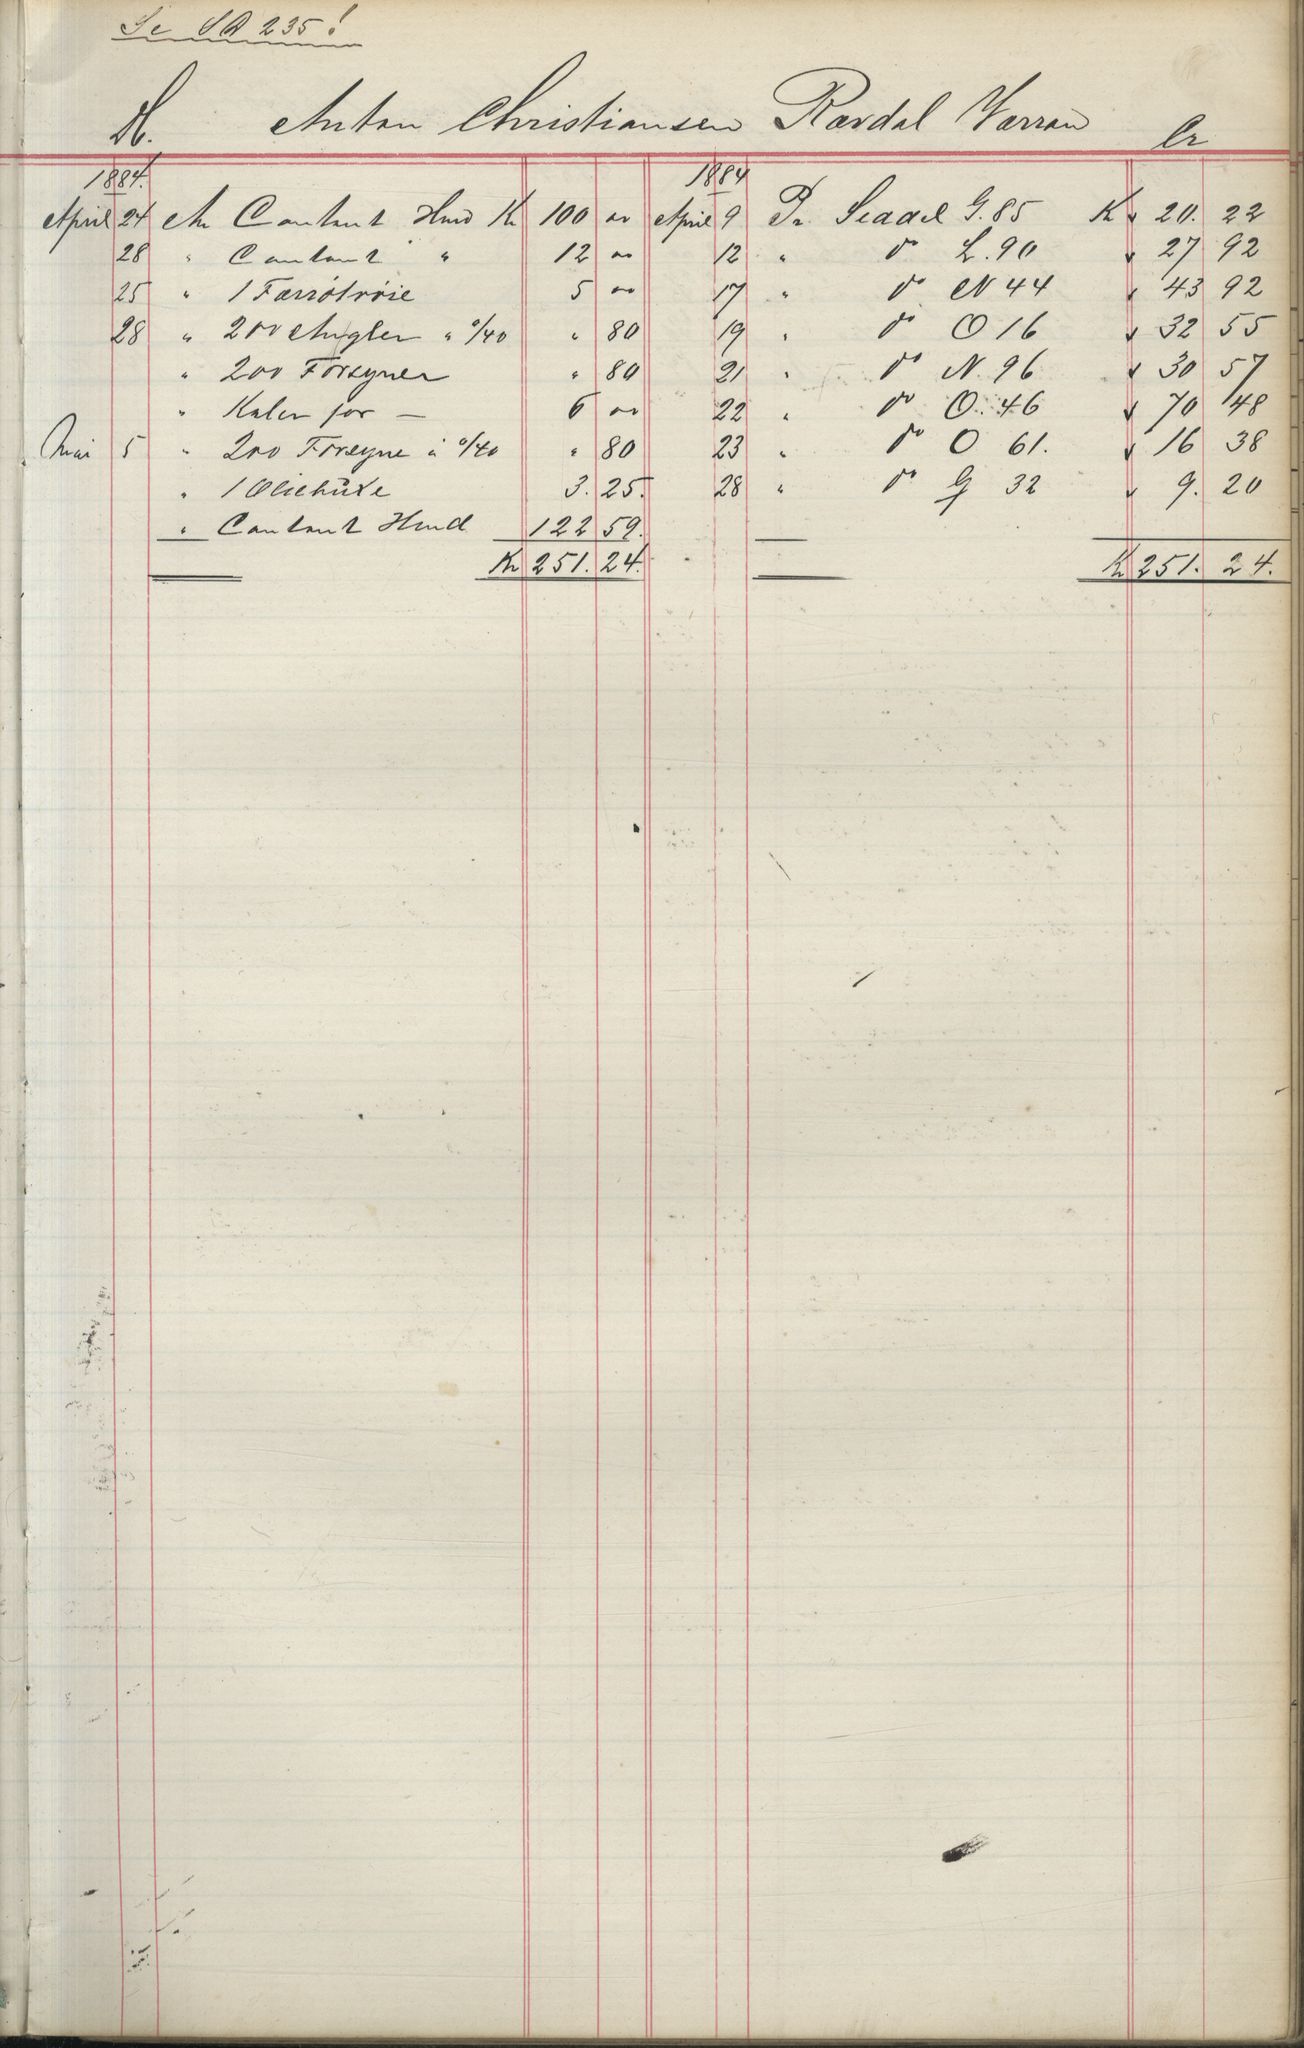 Se SR 235!
Dt. Anton Christiansen Rørdal Værran Cr
1884. 1884
April 24 An Contant Hmd Kr 100 00 April 9 Pr Seddel G. 85 Kr 20. 22
28 " Contant " 12 00 12 " do L. 90 27 92
25 " 1 Færrøtrøie 5 00 17 " do N 44 43 92
28 " 200 Angler " 0/40 " 80 19 " do O 16 32 55
" 200 Forsyner " 80 21 " do N. 96 30 57
" Kaler for — 6 00 22 " do O. 46 70 48
Mai 5 " 200 Forsyne à 0/40 " 80 23 " do O 61. 16 38
" 1 Oliebuxe 3. 25. 28 " do G 32 9. 20
" Contant Hmd 122 59.
Kr 251. 24. Kr 251. 24.